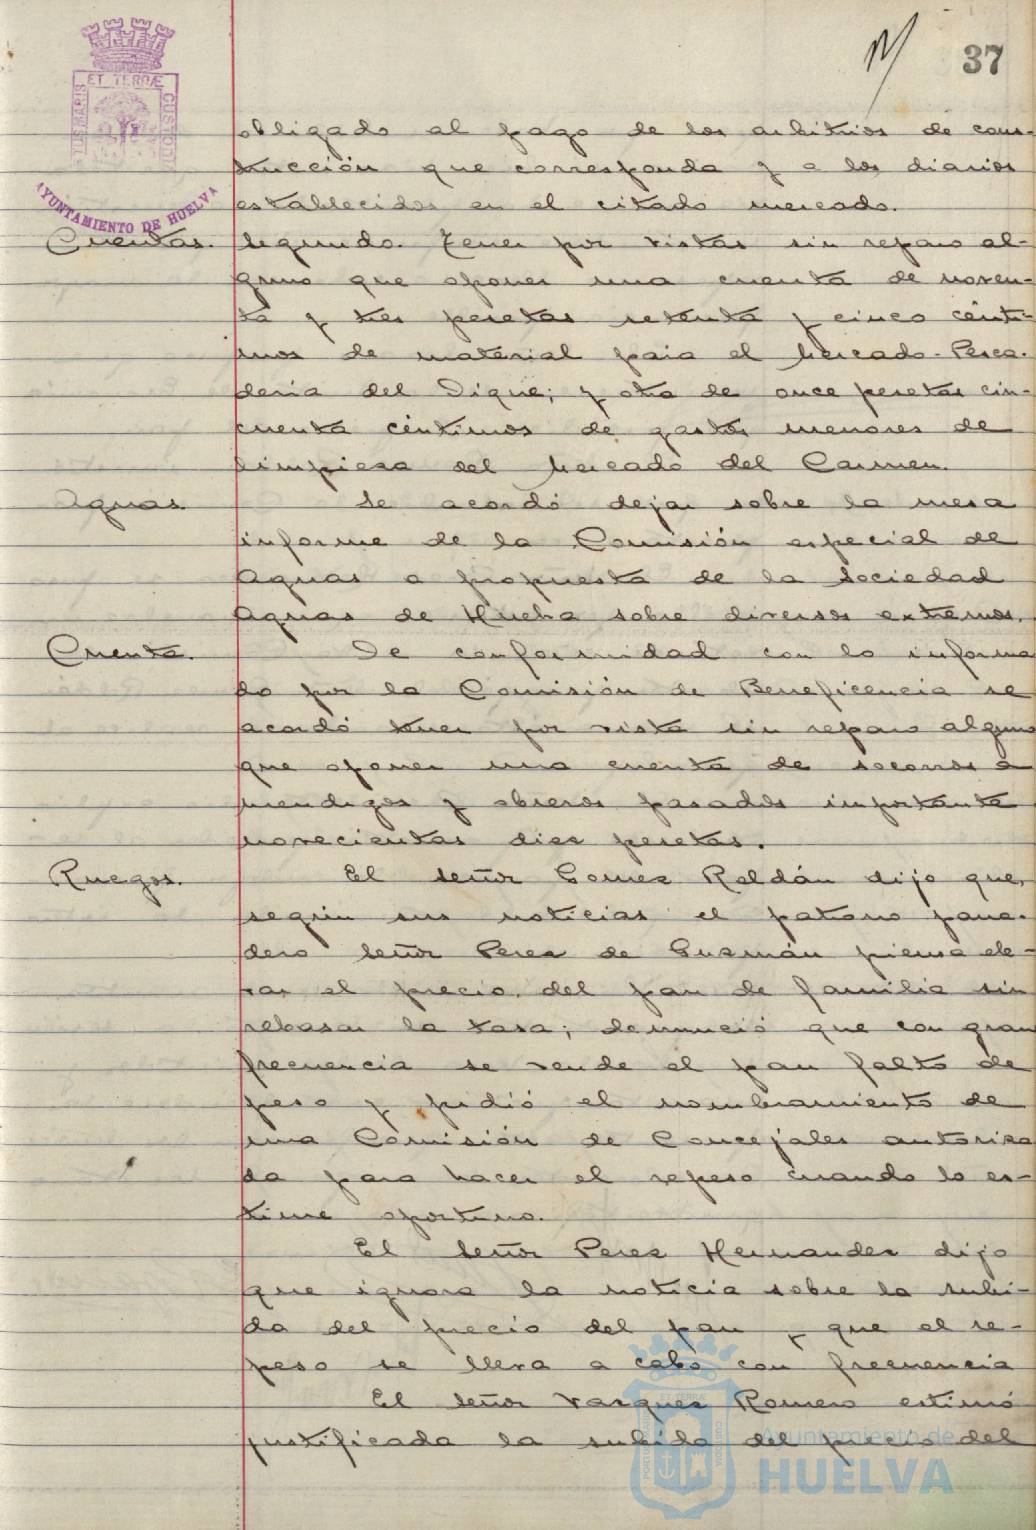 37
ET TERRÆ
CUSTODI
AYUNTAMIENTO DE HUELVA
obligado al pago de los arbitrios de cons-
trucción que corresponda y a los diarios
establecidos en el citado mercado.
Cuentas. Segundo. Tener por vistas sin reparo al-
guno que oponer una cuenta de noven-
ta y tres pesetas setenta y cinco cénti-
mos de material para el Mercado-Pesca-
dería del Dique; y otra de once pesetas cin-
cuenta céntimos de gastos menores de
limpieza del Mercado del Carmen.
Aguas. Se acordó dejar sobre la mesa
informe de la Comisión especial de
Aguas a propuesta de la Sociedad
Aguas de Huelva sobre diversos extremos.
Cuenta. De conformidad con lo informa
do por la Comisión de Beneficencia se
acordó tener por vista sin reparo alguno
que oponer una cuenta de socorros a
mendigos y obreros parados importante
novecientas diez pesetas.
Ruegos. El señor Gomez Roldán dijo que,
según sus noticias el patrono pana-
dero Señor Perez de Guzmán piensa ele-
var el precio del pan de familia sin
rebasar la tasa; denunció que con gran
frecuencia se vende el pan falto de
peso y pidió el nombramiento de
una Comisión de Concejales autoriza
da para hacer el repeso cuando lo es-
time oportuno.
El Señor Perez Hernandez dijo
que ignora la noticia sobre la subi-
da del precio del pan y que el re-
peso se lleva a cabo con frecuencia
El Señor Vazquez Romero estimó
justificada la subida del precio del
Ayuntamiento de
HUELVA